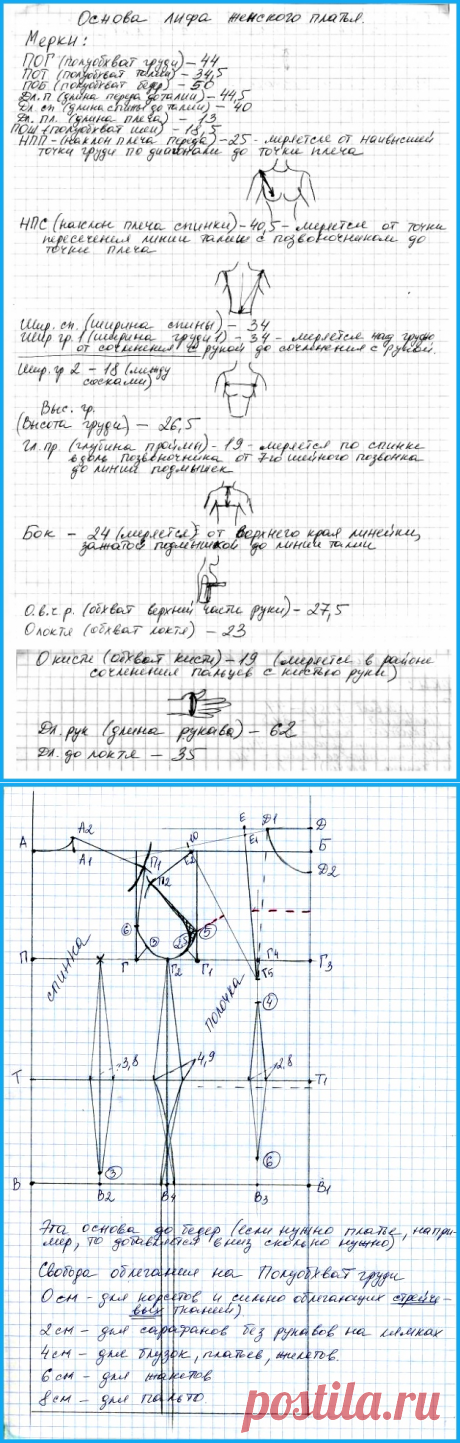 Основа лифа женского платья.
Мерки:
ПОГ (полуобхват груди) – 44
ПОТ (полуобхват талии) – 34,5
ПОБ (полуобхват бедер) – 50
Дл. п (длина переда до талии) – 44,5
Дл. сп. (длина спины до талии) – 40
Дл. пл. (длина плеча) – 13
ПОШ (полуобхват шеи) – 18,5
НПП – (наклон плеча переда) – 25 – меряется от наивысшей
точки груди по диагонали до точки плеча
НПС (наклон плеча спинки) – 40,5 – меряется от точки
пересечения линии талии с позвоночником до
точки плеча
Шир. сп. (ширина спины) – 34
Шир гр. 1 (ширина груди 1) – 34 – меряется над грудью
от сочленения с рукой до сочленения с рукой.
Шир. гр 2 – 18 (между
сосками)
Выс. гр.
(Высота груди) – 26,5
Гл. пр. (глубина проймы) – 19 – меряется по спинке
вдоль позвоночника от 7-го шейного позвонка
до линии подмышек
Бок – 24 (меряется) от верхнего края линейки,
зажатой подмышкой до линии талии
О.в.ч р. (обхват верхней части руки) – 27,5
О локтя (обхват локтя) – 23
О кисти (обхват кисти) – 19 (меряется в районе
сочленения пальцев с кистью руки)
Дл. рук (длина рукава) – 62
Дл. до локтя – 35
А2 10 Е Д1 Д
А А1 П1 Е2 Е1 Б
П2 Д2
6 3 2,5 5
П Г Г2 Г1 Г4 Г3
Г5
спинка
полочка
4
Т 3,8 4,9 2,8 Т1
3 6
В В2 В4 В3 В1
Эта основа до бедер (если нужно платье, напри-
мер, то добавляется вниз сколько нужно)
Свобода облегания на Полуобхват груди
0 см – для корсетов и сильно облегающих стрейче-
вых тканей)
2 см – для сарафанов без рукавов на лямках
4 см – для блузок, платьев, жилетов.
6 см – для жакетов
8 см – для пальто.
postila.ru